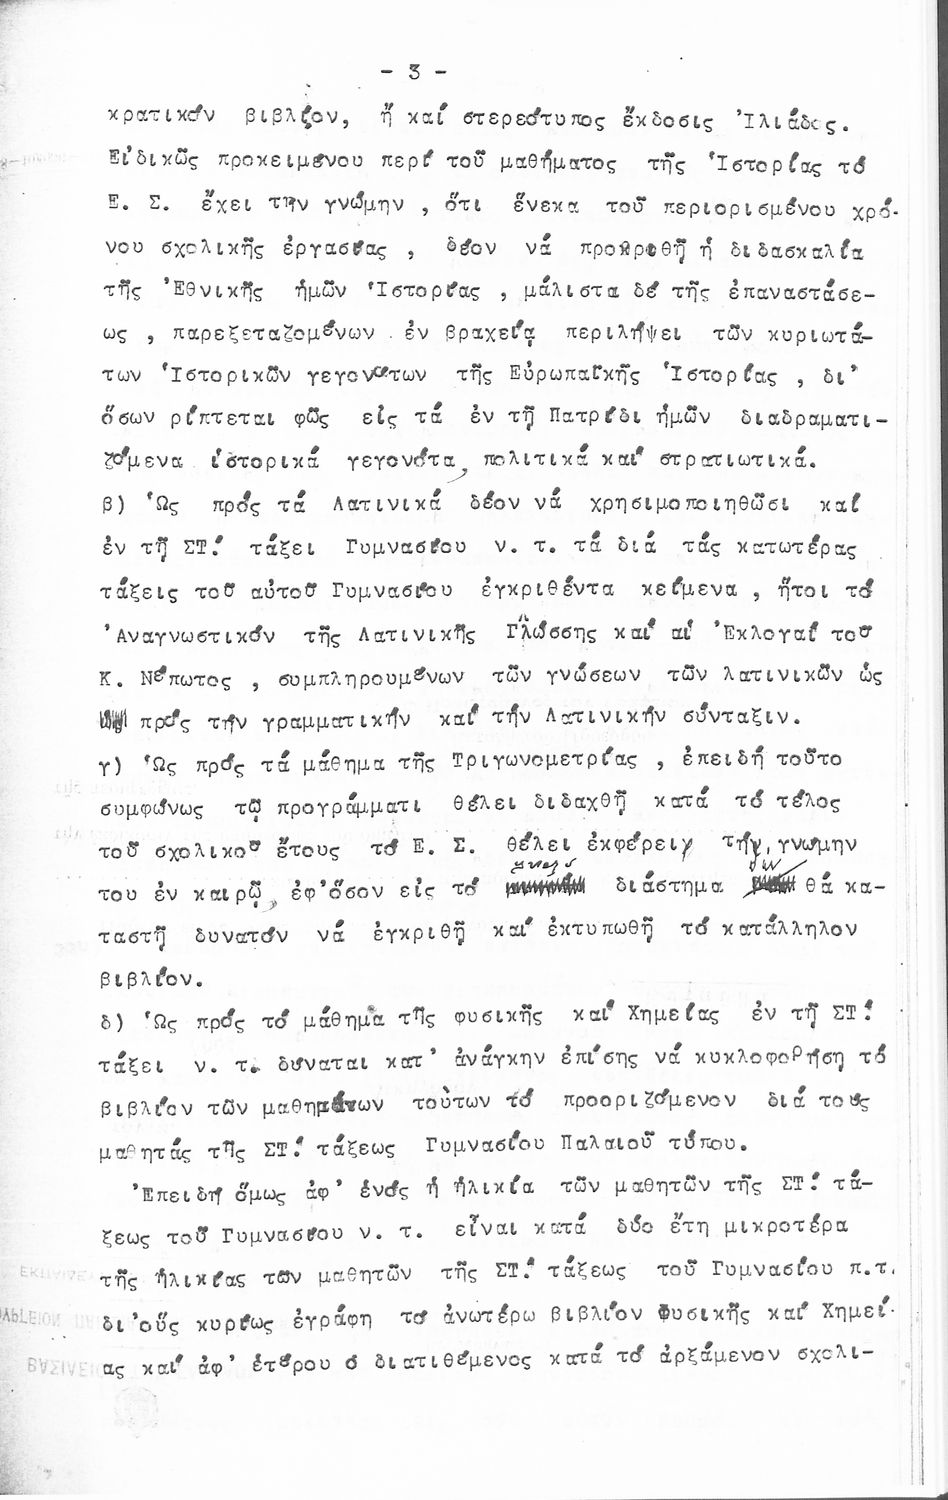 - 3 -
κρατικόν βιβλίον, ἤ καί στερεότυπος ἔκδοσις Ἰλιάδος.
Εἰδικῶς προκειμένου περί τοῦ μαθήματος τῆς Ἱστορίας τό
Ε. Σ. ἔχει τήν γνώμην , ὅτι ἕνεκα τοῦ περιορισμένου χρό-
νου σχολικῆς ἐργασίας , δέον νά προκριθῇ ἡ διδασκαλία
τῆς Ἐθνικῆς ἡμῶν Ἱστορίας , μάλιστα δέ τῆς ἐπαναστάσε-
ως , παρεξεταζομένων ἐν βραχείᾳ περιλήψει τῶν κυριωτά-
των Ἱστορικῶν γεγονότων τῆς Εὐρωπαϊκῆς Ἱστορίας , δι'
ὅσων ρίπτεται φῶς εἰς τά ἐν τῇ Πατρίδι ἡμῶν διαδραματι-
ζόμενα ἱστορικά γεγονότα, πολιτικά καί στρατιωτικά.
β) Ὡς πρός τά Λατινικά δέον νά χρησιμοποιηθῶσι καί
ἐν τῇ ΣΤ΄. τάξει Γυμνασίου ν. τ. τά διά τάς κατωτέρας
τάξεις τοῦ αὐτοῦ Γυμνασίου ἐγκριθέντα κείμενα , ἤτοι τό
Ἀναγνωστικόν τῆς Λατινικῆς Γλώσσης καί αἱ Ἐκλογαί τοῦ
Κ. Νέπωτος , συμπληρουμένων τῶν γνώσεων τῶν λατινικῶν ὡς
πρός τήν γραμματικήν καί τήν Λατινικήν σύνταξιν.
γ) Ὡς πρός τά μάθημα τῆς Τριγωνομετρίας , ἐπειδή τοῦτο
συμφώνως τῷ προγράμματι θέλει διδαχθῇ κατά τό τέλος
τοῦ σχολικοῦ ἔτους τό Ε. Σ. θέλει ἐκφέρει τήν γνώμην
του ἐν καιρῷ, ἐφ'ὅσον εἰς τό διάστημα θά κα-
ταστῇ δυνατόν νά ἐγκριθῇ καί ἐκτυπωθῇ τό κατάλληλον
βιβλίον.
δ) Ὡς πρός τό μάθημα τῆς φυσικῆς καί Χημείας ἐν τῇ ΣΤ΄.
τάξει ν. τ. δύναται κατ' ἀνάγκην ἐπίσης νά κυκλοφορήσῃ τό
βιβλίον τῶν μαθημάτων τούτων τό προοριζόμενον διά τούς
μαθητάς τῆς ΣΤ΄. τάξεως Γυμνασίου Παλαιοῦ τύπου.
Ἐπειδή ὅμως ἀφ' ἑνός ἡ ἡλικία τῶν μαθητῶν τῆς ΣΤ΄. τά-
ξεως τοῦ Γυμνασίου ν. τ. εἶναι κατά δύο ἔτη μικροτέρα
τῆς ἡλικίας τῶν μαθητῶν τῆς ΣΤ΄. τάξεως τοῦ Γυμνασίου π.τ.
δι'οὕς κυρίως ἐγράφη τό ἀνωτέρω βιβλίον Φυσικῆς καί Χημεί-
ας καί ἀφ' ἑτέρου ὁ διατιθέμενος κατά τό ἀρξάμενον σχολι-